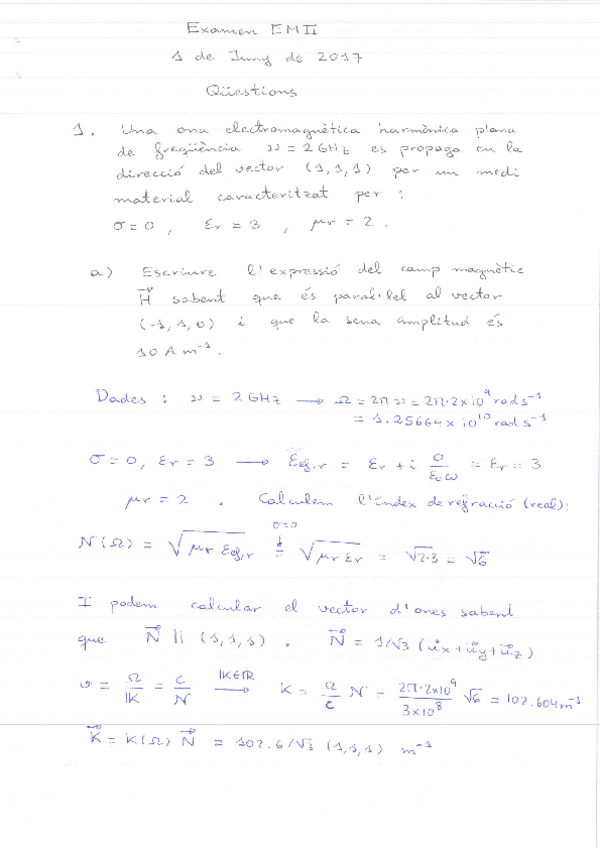 Examen EMII
1 de Juny de 2017
Qüestions
1. Una ona electromagnètica harmònica plana
de freqüència ν = 2 GHz es propaga en la
direcció del vector (1,1,1) per un medi
material caracteritzat per :
σ = 0 , εr = 3 , μr = 2 .
a) Escriure l'expressió del camp magnètic
H⃗ sabent que és paral·lel al vector
(-1,1,0) i que la seva amplitud és
10 A m⁻¹.
Dades : ν = 2 GHz → Ω = 2Πν = 2Π·2×10⁹ rad s⁻¹
= 1.25664 × 10¹⁰ rad s⁻¹
σ = 0, εr = 3 → εef,r = εr + i σ/(ε₀ω) = εr = 3
μr = 2 . Calculem l'índex de refracció (real):
N(Ω) = √(μr εef,r) =(σ=0) √(μr εr) = √2·3 = √6
I podem calcular el vector d'ones sabent
que N⃗ || (1,1,1) . N⃗ = 1/√3 (u⃗x + u⃗y + u⃗z)
v = Ω/|K = C/N →(|K∈ℝ) K = Ω/c N = 2Π·2×10⁹/3×10⁸ √6 = 102.604 m⁻¹
K⃗ = K(Ω) N⃗ = 102.6/√3 (1,1,1) m⁻¹